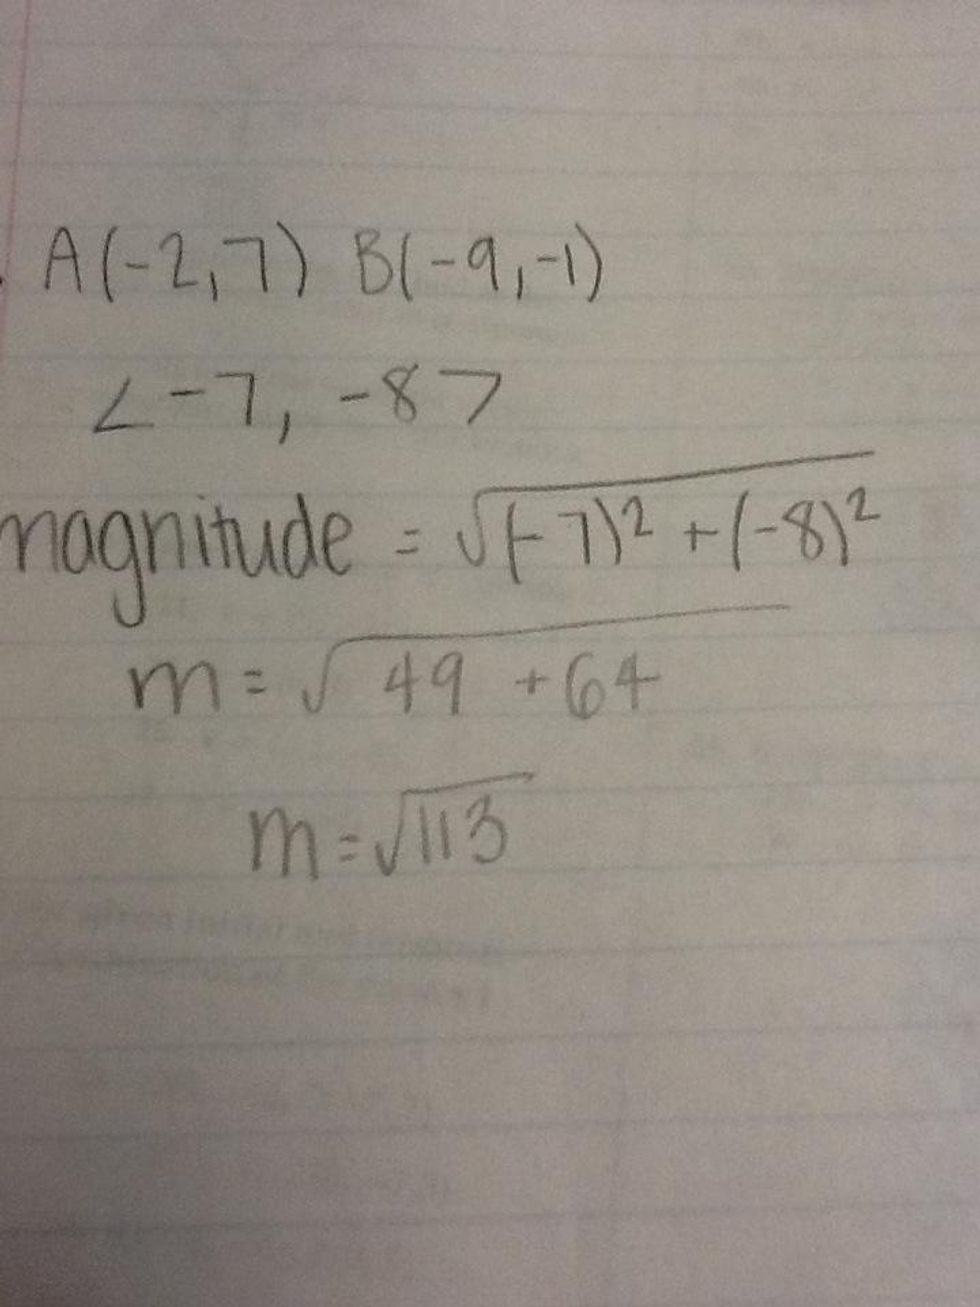 A(-2,7) B(-9,-1)
<-7, -8>
magnitude = √(-7)² + (-8)²
m = √49 + 64
m = √113